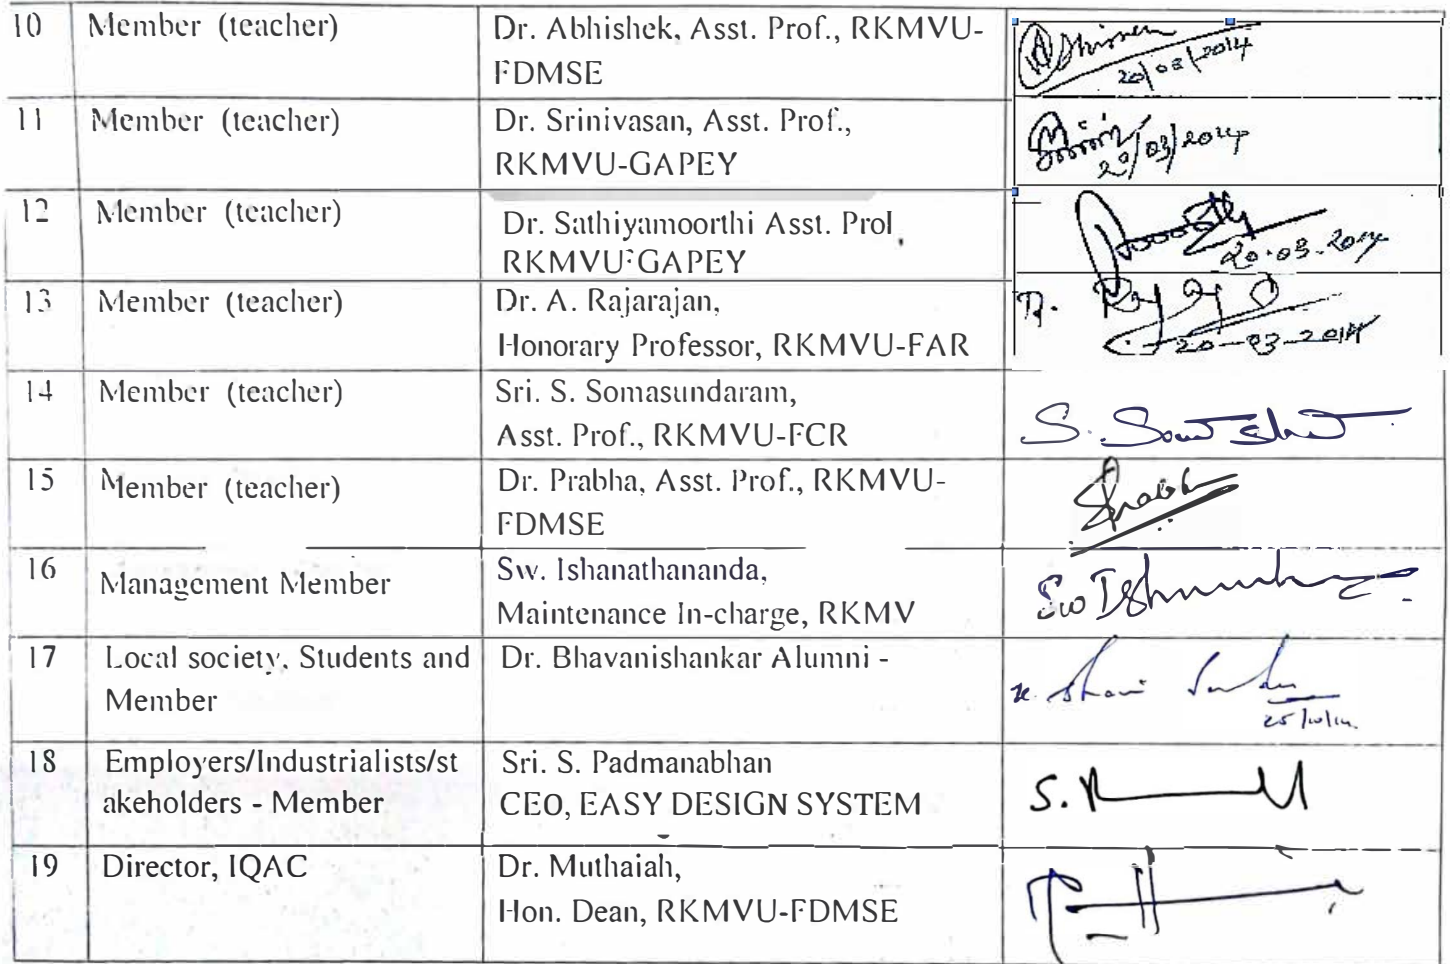 10 Member (teacher) Dr. Abhishek, Asst. Prof., RKMVU-
FDMSE
20/03/2014
11 Member (teacher) Dr. Srinivasan, Asst. Prof.,
RKMVU-GAPEY
20/03/2014
12 Member (teacher) Dr. Sathiyamoorthi Asst. Prof
RKMVU-GAPEY
20.03.2014
13 Member (teacher) Dr. A. Rajarajan,
Honorary Professor, RKMVU-FAR
20-03-2014
14 Member (teacher) Sri. S. Somasundaram,
Asst. Prof., RKMVU-FCR
15 Member (teacher) Dr. Prabha, Asst. Prof., RKMVU-
FDMSE
Prabha
16 Management Member Sw. Ishanathananda,
Maintenance In-charge, RKMV
17 Local society, Students and Dr. Bhavanishankar Alumni -
Member
18 Employers/Industrialists/st Sri. S. Padmanabhan
akeholders - Member CEO, EASY DESIGN SYSTEM
19 Director, IQAC Dr. Muthaiah,
Hon. Dean, RKMVU-FDMSE